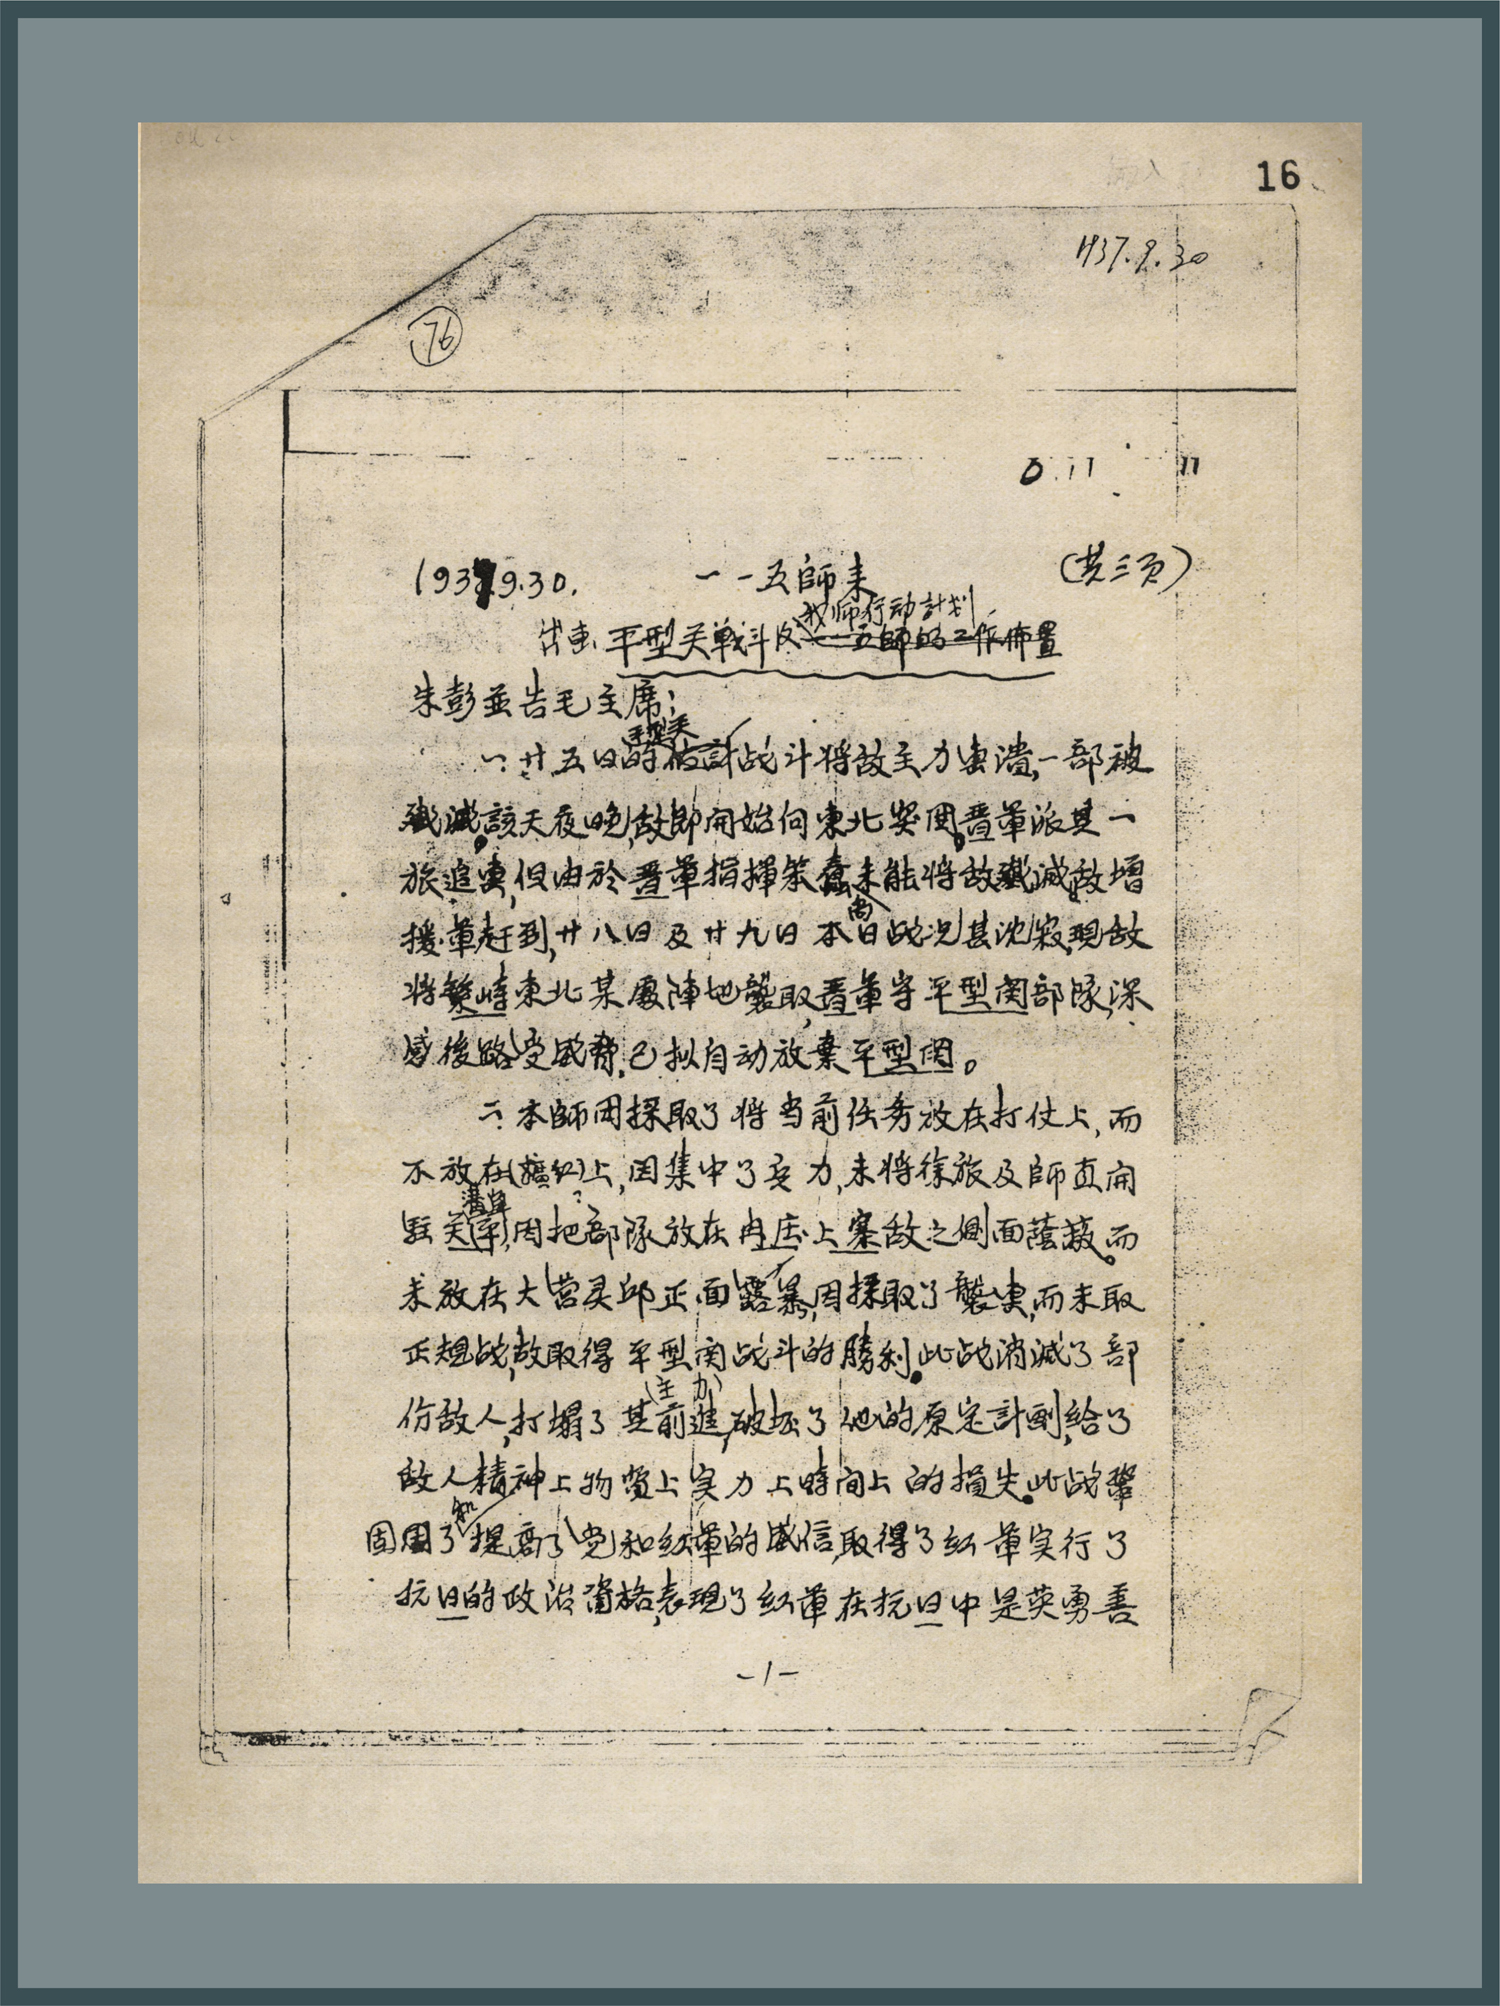 16
1937.9.30
76
0.11 11
1937.9.30. 一一五師来 (共三页)
我师行动計划
平型关戰斗及一一五師的工作佈置
朱彭並告毛主席:
平型关
一.廿五日的估計战斗将敌主力击溃,一部被
殲滅,該天夜晚,敌即開始向東北突围,晋軍派其一
旅追击,但由於晋軍指揮笨蠢未能将敌殲滅,敌增
援軍赶到,廿八日及廿九日本日战况甚沈寂,現敌
尚
将繁峙東北某處陣地襲取,晋軍守平型関部隊,深
感後路受威脅,已拟自动放棄平型関。
二.本師因採取了将当前任务放在打仗上,而
不放在(擴紅)上,因集中了兵力,未将徐旅及師直開
駐关 因把部隊放在冉庄上寨敌之側面蔭蔽。而
未放在大营灵邱正面露暴,因採取了襲击,而未取
正規战,故取得平型関战斗的勝利。此战消滅了部
(主力)
份敌人,打塌了其前進,破坏了他的原定計劃,給了
敌人精神上物质上实力上時间上的損失。此战鞏
和
固固了提高了党和红軍的威信,取得了红軍实行了
抗日的政治資格,表現了红軍在抗日中是英勇善
-1-